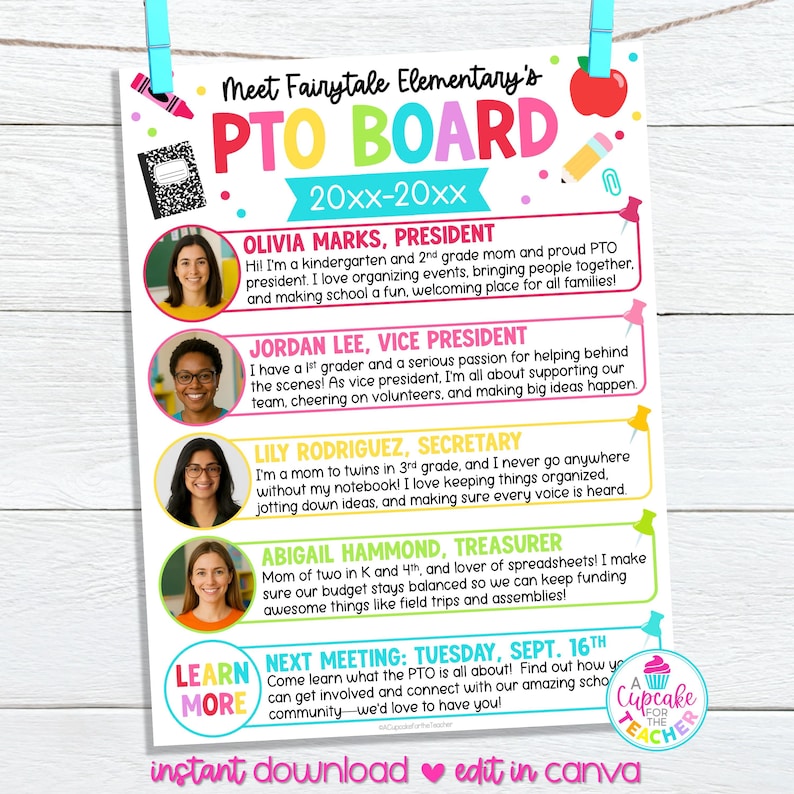 Meet Fairytale Elementary's
PTO BOARD
20xx-20xx
OLIVIA MARKS, PRESIDENT
Hi! I'm a kindergarten and 2nd grade mom and proud PTO
president. I love organizing events, bringing people together,
and making school a fun, welcoming place for all families!
JORDAN LEE, VICE PRESIDENT
I have a 1st grader and a serious passion for helping behind
the scenes! As vice president, I'm all about supporting our
team, cheering on volunteers, and making big ideas happen.
LILY RODRIGUEZ, SECRETARY
I'm a mom to twins in 3rd grade, and I never go anywhere
without my notebook! I love keeping things organized,
jotting down ideas, and making sure every voice is heard.
ABIGAIL HAMMOND, TREASURER
Mom of two in K and 4th, and lover of spreadsheets! I make
sure our budget stays balanced so we can keep funding
awesome things like field trips and assemblies!
LEARN
MORE
NEXT MEETING: TUESDAY, SEPT. 16TH
Come learn what the PTO is all about! Find out how
can get involved and connect with our amazing
community—we'd love to have you!
©ACupcakeForTheTeacher
A
Cupcake
FOR THE
TEACHER
instant download ♥ edit in canva